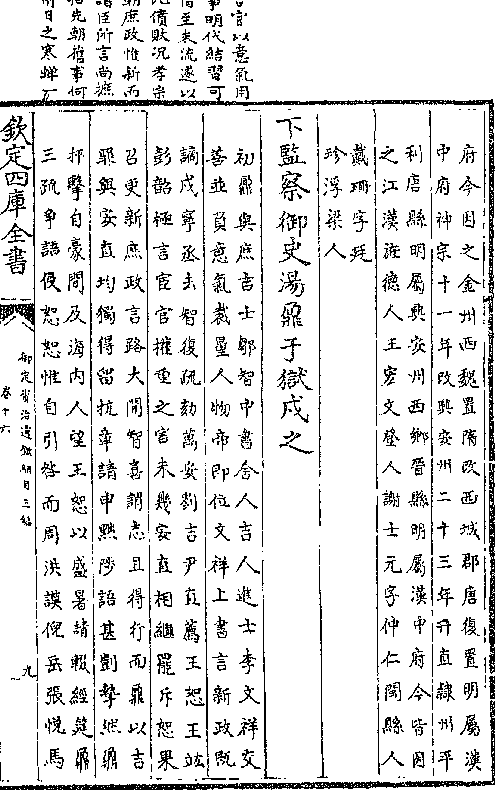 言官以意氣用
事明代結習可
至末流遂以
債敗况孝宗
朝庶政惟新而
諸臣所言尚摭
拾先朝舊事何
日之寒蟬
府今因之金州西魏置隋改西城郡唐復置明屬漢
中府神宗十一年改興安州二十三年升直隸州平
利唐縣明屬興安州西鄉晉縣明屬漢中府今皆因
之江漢旌德人王宏文登人謝士元字仲仁閩縣人
戴珊字廷
珍浮梁人
下監察御史湯鼐于獄戍之
初鼐與庶吉士鄒智中書舍人吉人進士李文祥交
善並負意氣裁量人物帝即位文祥上書言新政既
謫咸寧丞去智復疏劾萬安劉吉尹直薦王恕王竑
彭韶極言宦官擁重之害未幾安直相繼罷斥恕果
召更新庶政言路大開智喜謂志且得行而鼐以吉
罪與安直均獨得留抗章請申黜陟語甚剴摯然鼐
抨擊自豪間及海內人望王恕以盛暑請輟經筵鼐
三疏爭語侵恕恕惟自引咎而周洪謨倪岳張悅馬
欽定四庫全書
御定資治通鑑綱目三編
卷十六
九